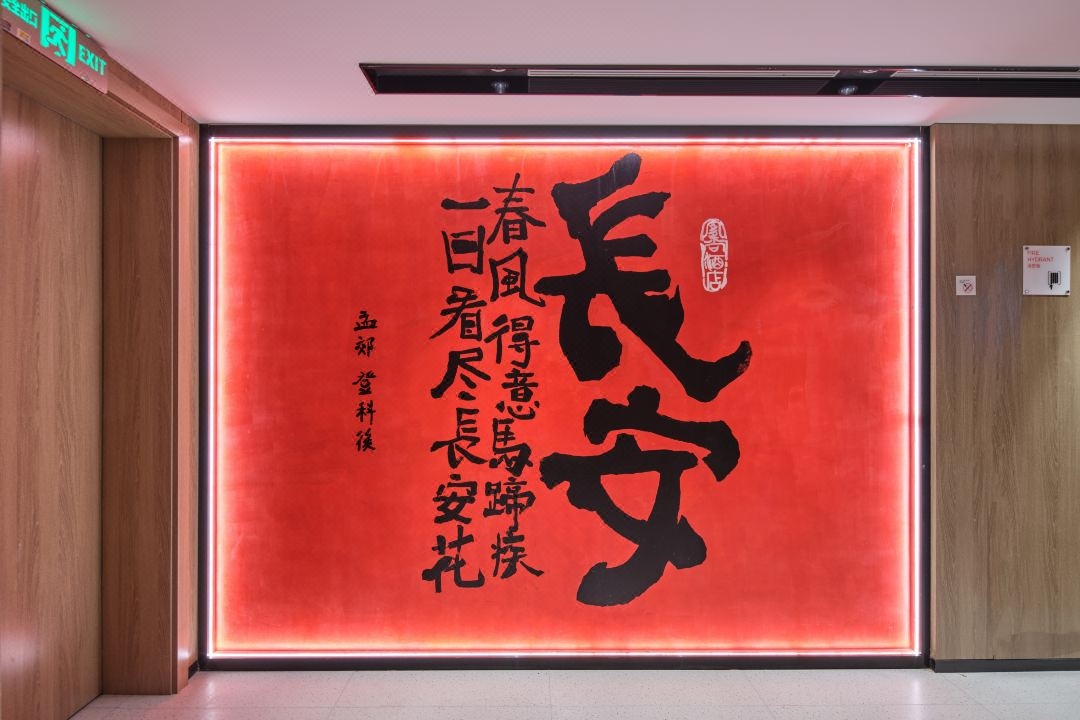 安全出口 EXIT
長安
春風得意馬蹄疾
一日看尽長安花
孟郊 登科後
酒店
FIRE
HYDRANT
消防栓